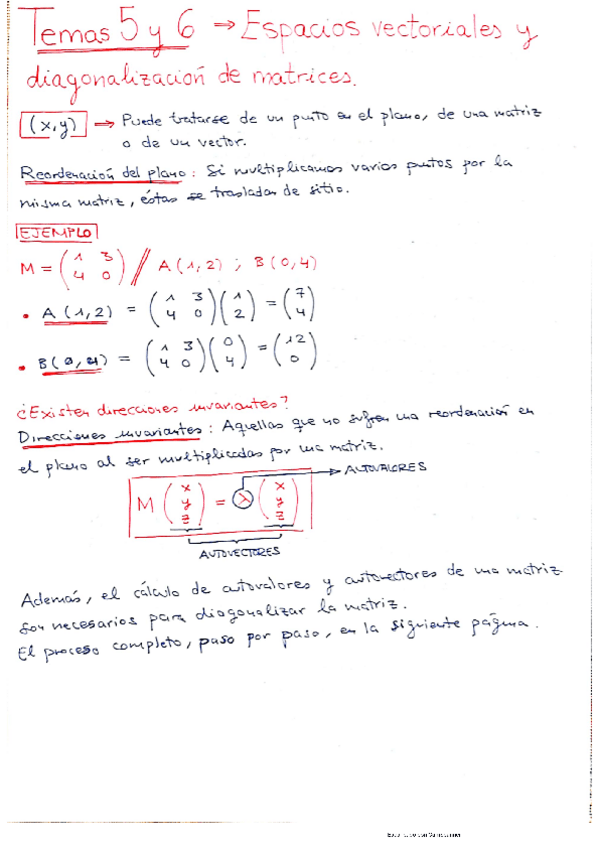 Temas 5 y 6 → Espacios vectoriales y
diagonalización de matrices.
(x,y) → Puede tratarse de un punto en el plano, de una matriz
o de un vector.
Reordenación del plano: Si multiplicamos varios puntos por la
misma matriz, éstas se trasladan de sitio.
EJEMPLO
M = (1 3 / 4 0) // A (1,2) ; B (0,4)
• A (1,2) = (1 3 / 4 0) (1 / 2) = (7 / 4)
• B (0,4) = (1 3 / 4 0) (0 / 4) = (12 / 0)
¿Existen direcciones invariantes?
Direcciones invariantes: Aquellas que no sufren una reordenación en
el plano al ser multiplicadas por una matriz.
→ AUTOVALORES
M (x / y / z) = λ (x / y / z)
AUTOVECTORES
Además, el cálculo de autovalores y autovectores de una matriz
son necesarios para diagonalizar la matriz.
El proceso completo, paso por paso, en la siguiente página.